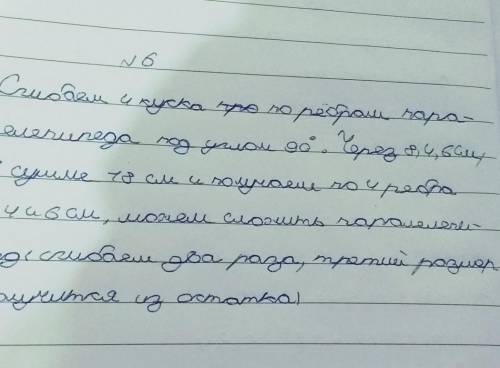 №6
Сгибаем 4 куска по рёбрам пара-
елепипеда под углом 90°. Через 8,4,6 см,
сумме 18 см и получаем по 4 ребра
4 и 6 см, можем сложить паралелепи-
ед (сгибаем два раза, третий размер
олучится из остатка)